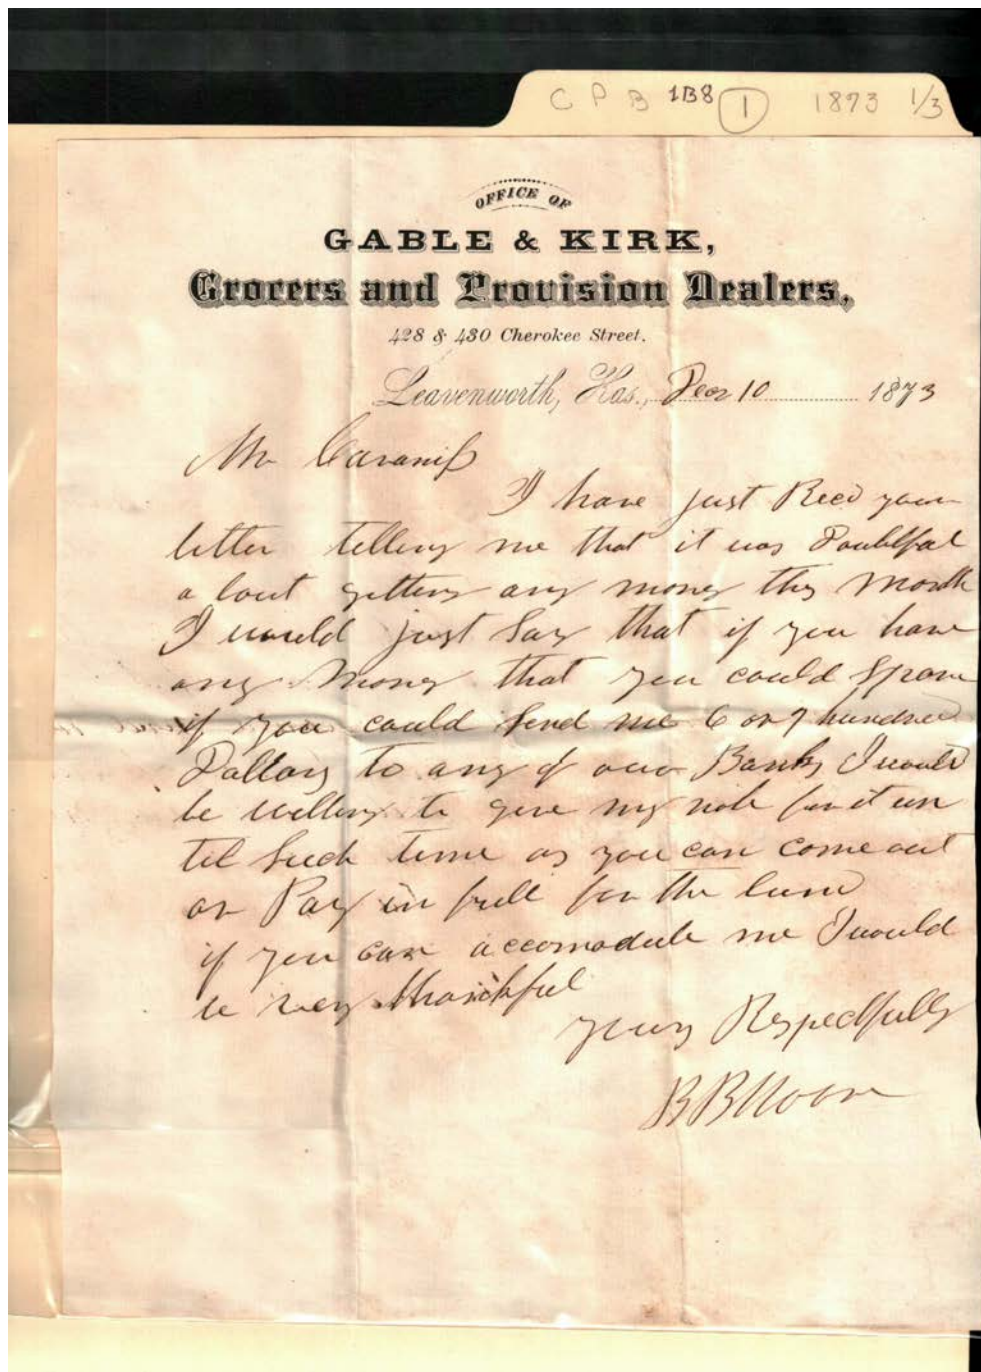 C P B 1B8 1 1873 1/3
OFFICE OF
GABLE & KIRK,
Grocers and Provision Dealers,
428 & 430 Cherokee Street.
Leavenworth, Kas., Decr 10 1873
Mr Cavaniss
I have just Recd your
letter telling me that it was Doubtful
a bout getting any money this Month
I would just Say that if you have
any Money that you could Spare
if you could Send me 6 or 7 hundred
Dollars to any of our Banks I would
be willing to give my note for it un
til Such time as you can come out
or Pay in full for the land
if you can accomodate me I would
be very thankful
yours Respectfully
B B Moore